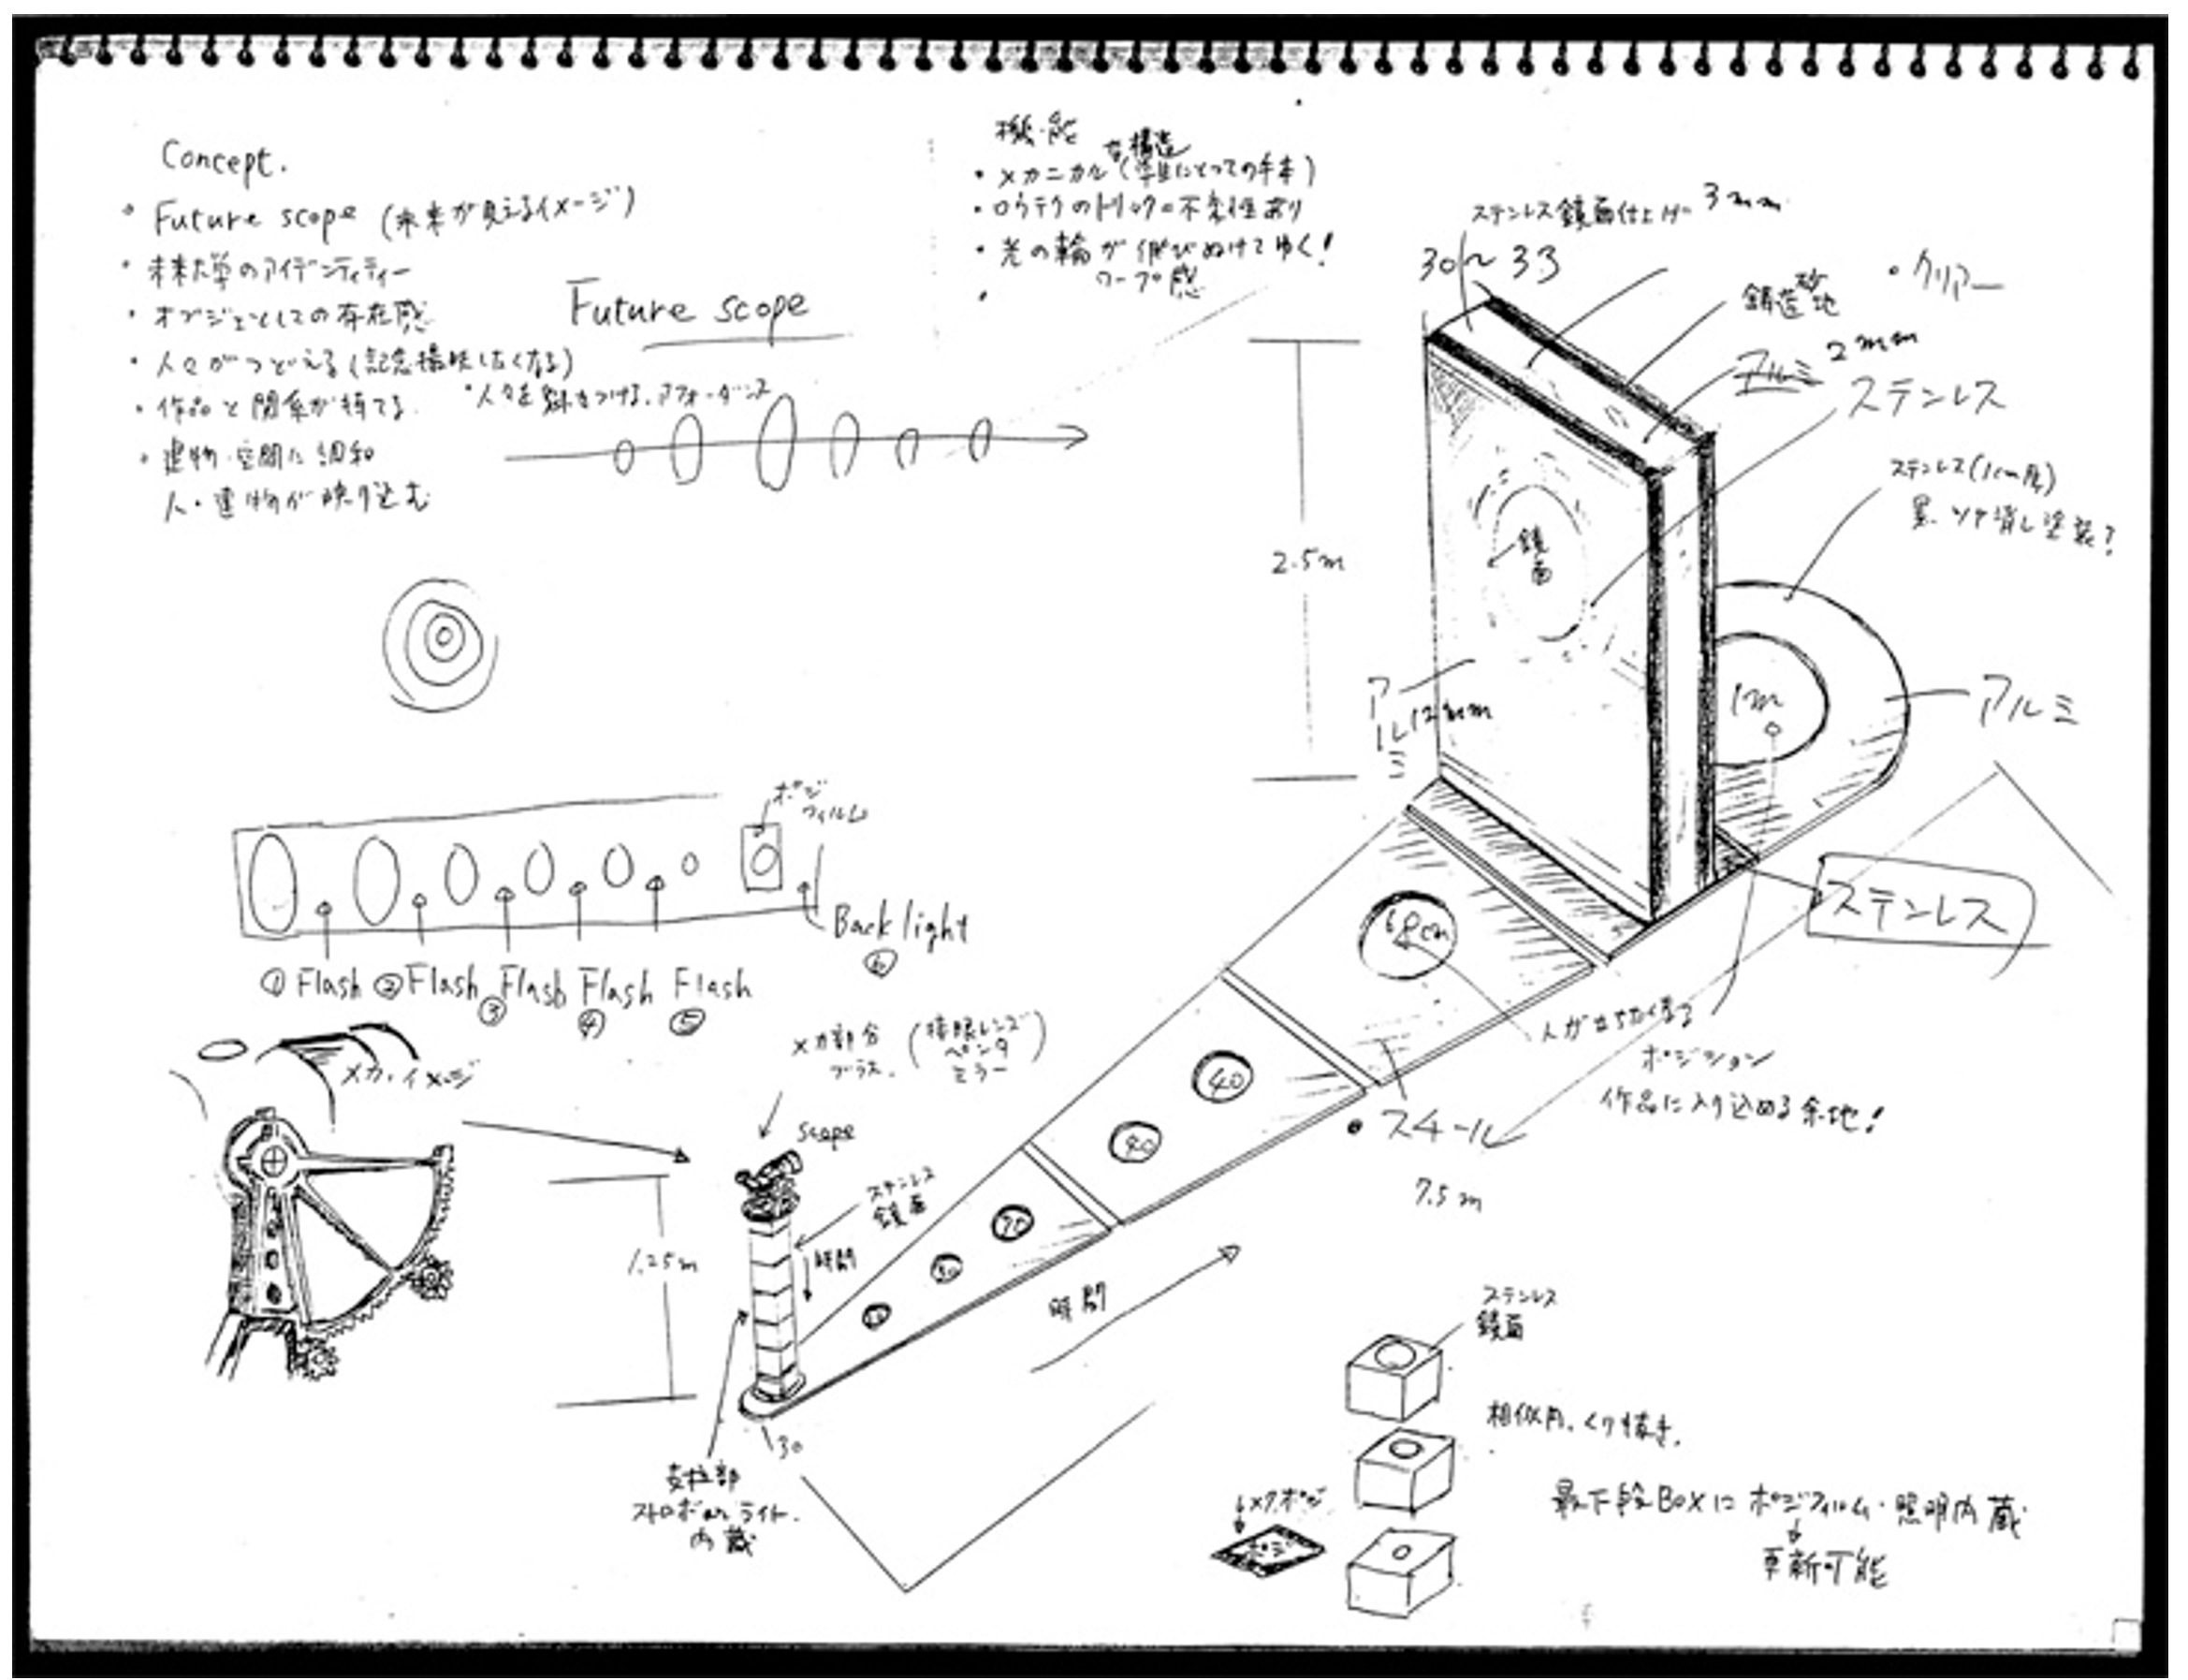 Concept.
・Future scope (未来が見えるイメージ)
・未来大学のアイデンティティー
・オブジェとしての存在感
・人々がつどえる(記念撮影したくなる)
・人々を引きつける.アフォーダンス
・作品と関係が持てる
・建物・空間に調和
人・建物が映り込む
Future scope
機能
・メカニカルな構造(学生にとっての手本)
・ロウテクのトリック
・光の輪が飛びぬけてゆく!
ワープ感
ステンレス鏡面仕上げ 3mm
30〜33
鋳造砂地
・クリアー
アルミ 2mm
ステンレス
ステンレス(1cm厚)
黒.ツヤ消し塗装?
2.5m
鏡面
アルミ
12mm
1m
アルミ
ステンレス
ポジフィルム
Back light
⑥
① Flash ② Flash ③ Flash ④ Flash ⑤ Flash
メカ・イメージ
メカ部分
ブラス.
(接眼レンズ
ペンタ
ミラー)
scope
ステンレス
鏡面
時間
1.25m
30
支柱部
ストロボ or ライト.
内蔵
68cm
40
40
人が立ちたくなる
ポジション
作品に入り込める余地!
・スチール
7.5m
時間
ステンレス
鏡面
相似円.くり抜き.
ポジ
最下段BOXにポジフィルム・照明内蔵
更新可能